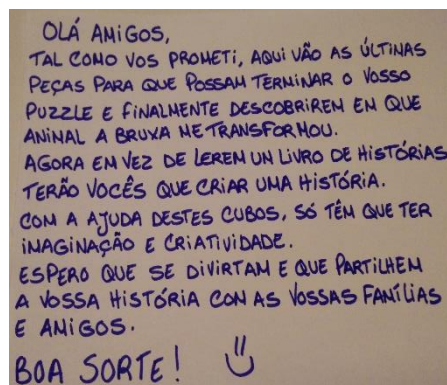 OLÁ AMIGOS,
TAL COMO VOS PROMETI, AQUI VÃO AS ÚLTIMAS
PEÇAS PARA QUE POSSAM TERMINAR O VOSSO
PUZZLE E FINALMENTE DESCOBRIREM EM QUE
ANIMAL A BRUXA ME TRANSFORMOU.
AGORA EM VEZ DE LEREM UM LIVRO DE HISTÓRIAS
TERÃO VOCÊS QUE CRIAR UMA HISTÓRIA.
COM A AJUDA DESTES CUBOS, SÓ TÊM QUE TER
IMAGINAÇÃO E CRIATIVIDADE.
ESPERO QUE SE DIVIRTAM E QUE PARTILHEM
A VOSSA HISTÓRIA COM AS VOSSAS FAMÍLIAS
E AMIGOS.
BOA SORTE!